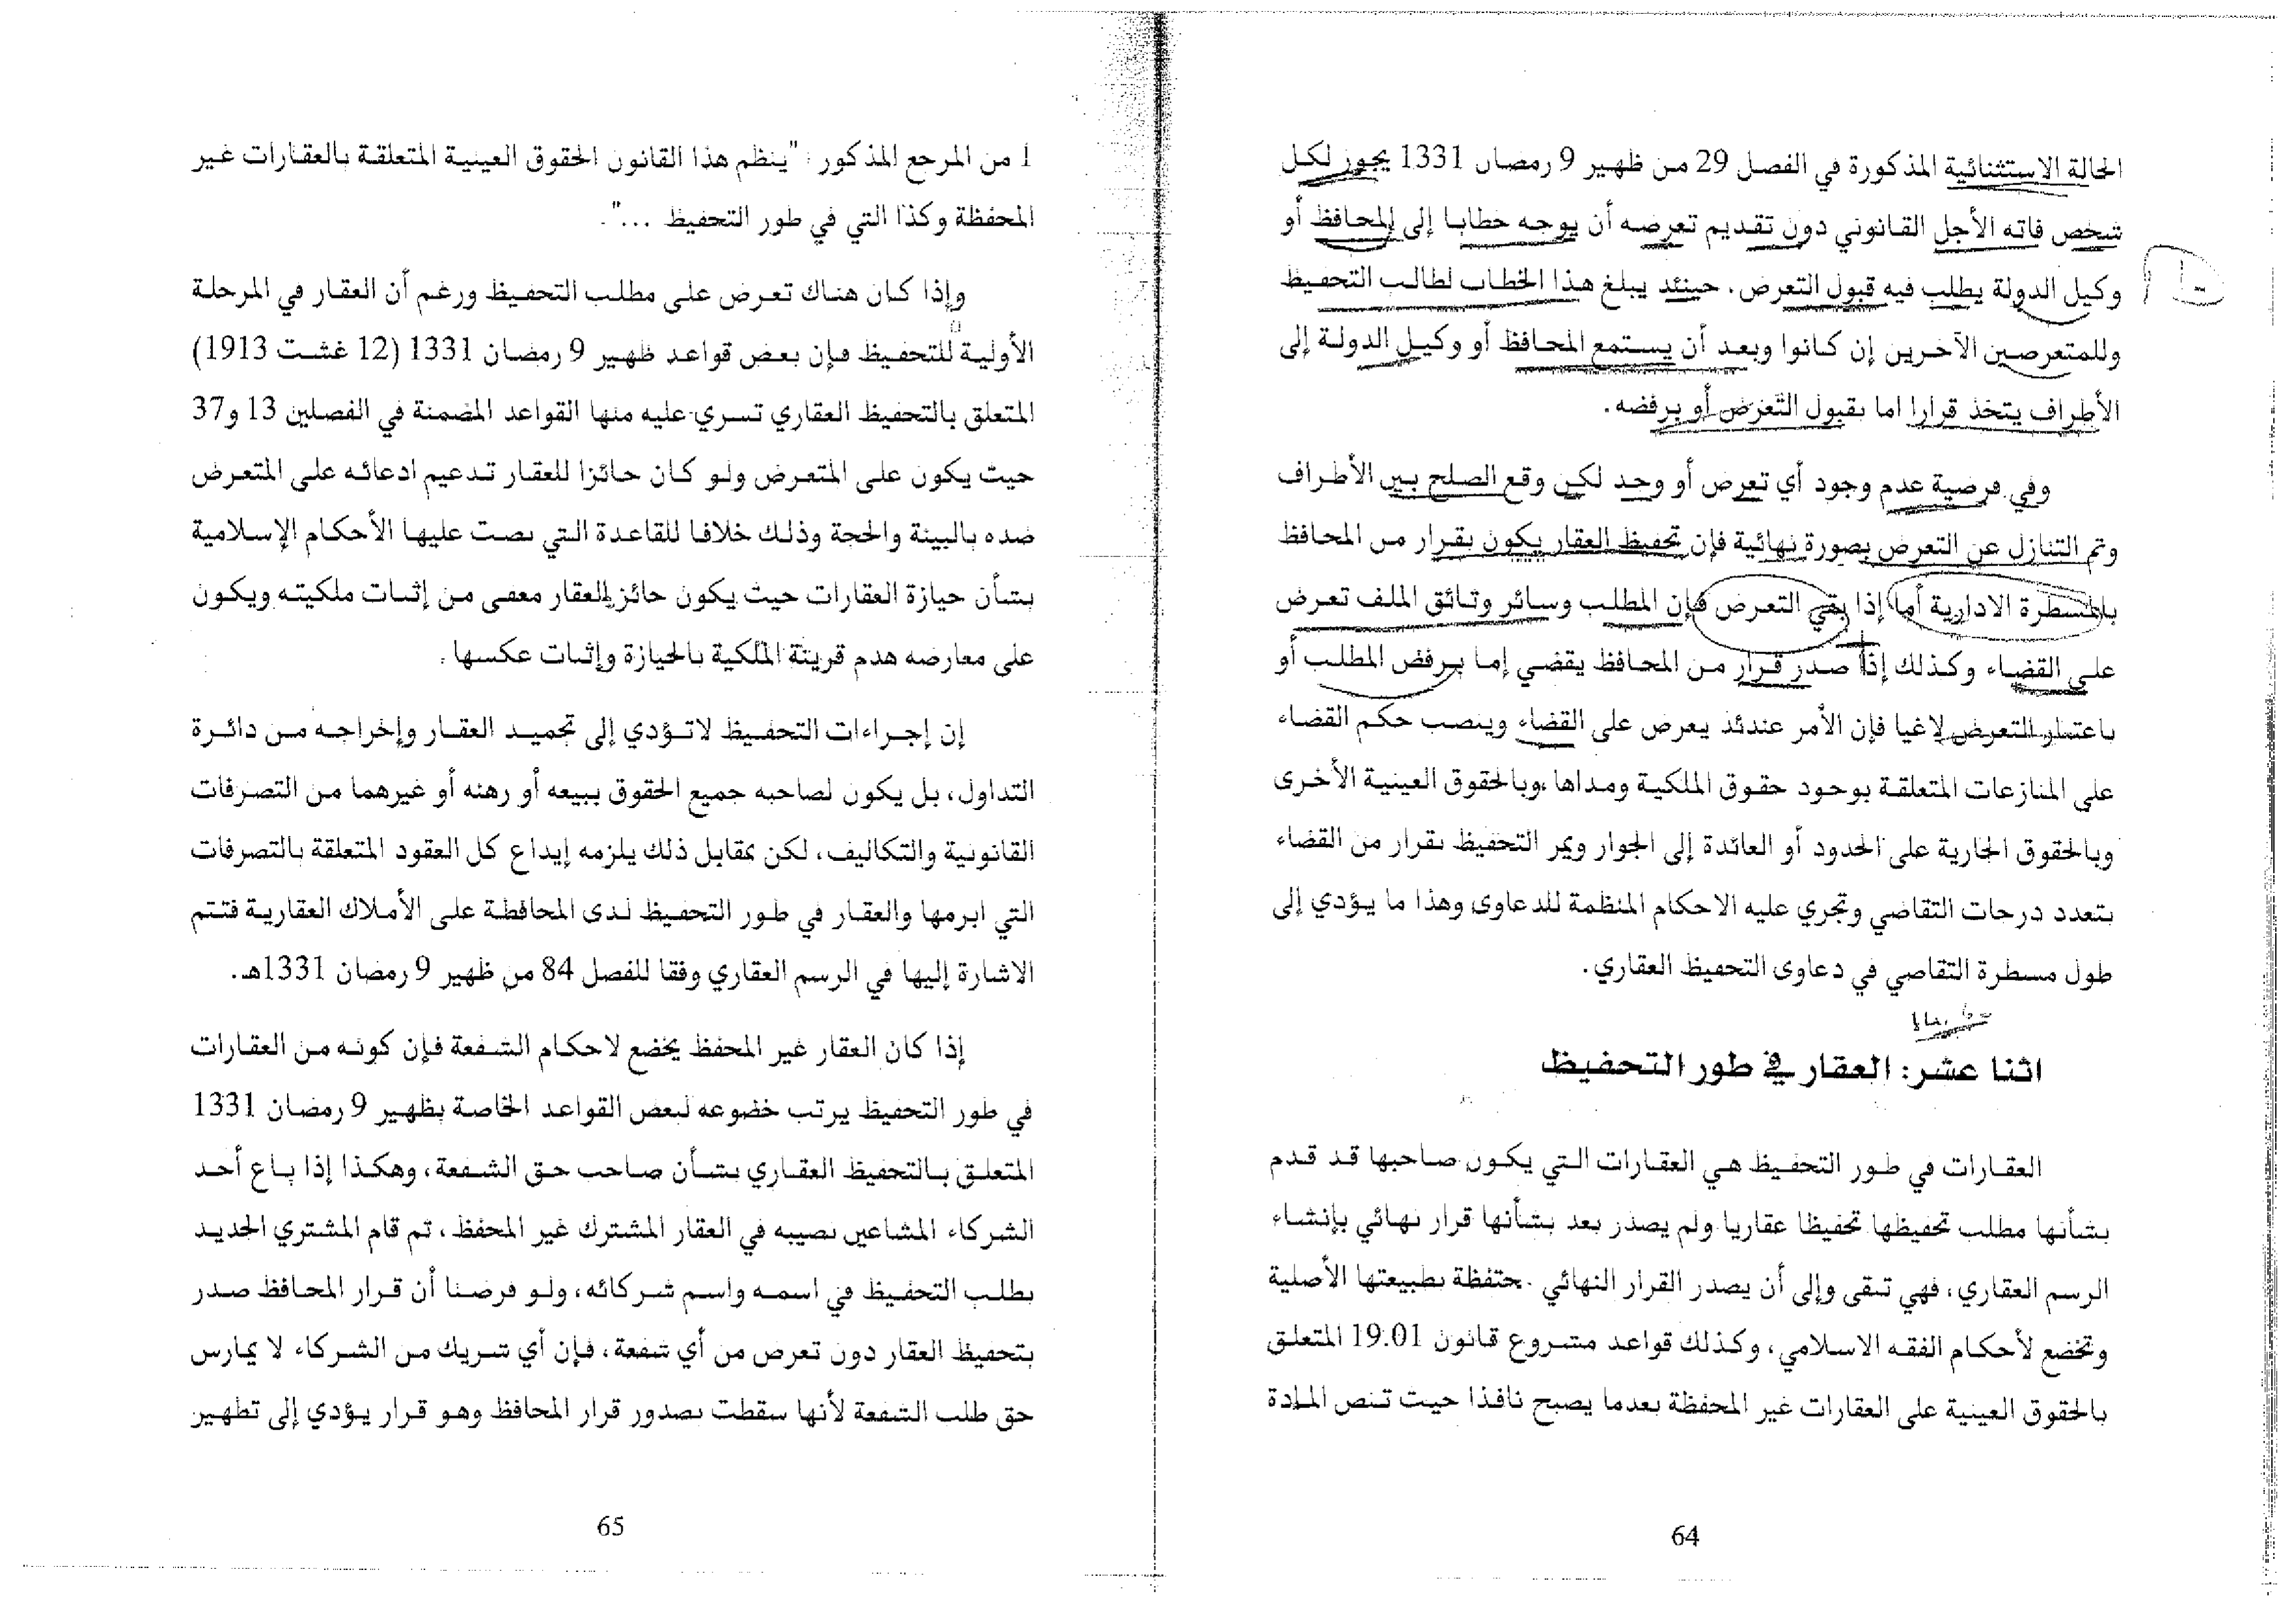 الحالة الاستثنائية المذكورة في الفصل 29 من ظهير 9 رمضان 1331 يجوز لكل
شخص فاته الأجل القانوني دون تقديم تعرضه أن يوجه خطابا إلى المحافظ أو
وكيل الدولة يطلب فيه قبول التعرض. حينئد يبلغ هذا الخطاب لطالب التحفيظ
وللمتعرضين الآخرين إن كانوا وبعد أن يستمع المحافظ أو وكيل الدولة إلى
الأطراف يتخذ قرارا اما بقبول التعرض أو برفضه.
وفي فرضية عدم وجود أي تعرض أو وجد لكن وقع الصلح بين الأطراف
وتم التنازل عن التعرض بصورة نهائية فإن تحفيظ العقار يكون بقرار من المحافظ
بالمسطرة الادارية أما إذا بقي التعرض فإن المطلب وسائر وثائق الملف تعرض
على القضاء وكذلك إذا صدر قرار من المحافظ يقضي إما برفض المطلب أو
باعتبار التعرض لاغيا فإن الأمر عندئذ يعرض على القضاء وينصب حكم القضاء
على المنازعات المتعلقة بوجود حقوق الملكية ومداها ،وبالحقوق العينية الأخرى
وبالحقوق الجارية على الحدود أو العائدة إلى الجوار ويمر التحفيظ بقرار من القضاء
بتعدد درجات التقاضي وتجري عليه الاحكام المنظمة للدعاوى وهذا ما يؤدي إلى
طول مسطرة التقاضي في دعاوى التحفيظ العقاري.
اثنا عشر: العقار في طور التحفيظ
العقارات في طور التحفيظ هي العقارات التي يكون صاحبها قد قدم
بشأنها مطلب تحفيظها تحفيظا عقاريا ولم يصدر بعد بشأنها قرار نهائي بإنشاء
الرسم العقاري، فهي تبقى وإلى أن يصدر القرار النهائي محتفظة بطبيعتها الأصلية
وتخضع لأحكام الفقه الاسلامي، وكذلك قواعد مشروع قانون 19.01 المتعلق
بالحقوق العينية على العقارات غير المحفظة بعدما يصبح نافذا حيث تنص المادة
64
1 من المرجع المذكور : "ينظم هذا القانون الحقوق العينية المتعلقة بالعقارات غير
المحفظة وكذا التي في طور التحفيظ ...".
وإذا كان هناك تعرض على مطلب التحفيظ ورغم أن العقار في المرحلة
الأولية للتحفيظ فإن بعض قواعد ظهير 9 رمضان 1331 (12 غشت 1913)
المتعلق بالتحفيظ العقاري تسري عليه منها القواعد المضمنة في الفصلين 13 و37
حيث يكون على المتعرض ولو كان حائزا للعقار تدعيم ادعائه على المتعرض
ضده بالبينة والحجة وذلك خلافا للقاعدة التي نصت عليها الأحكام الإسلامية
بشأن حيازة العقارات حيث يكون حائز العقار معفى من إثبات ملكيته ويكون
على معارضه هدم قرينة الملكية بالحيازة وإثبات عكسها .
إن إجراءات التحفيظ لاتؤدي إلى تجميد العقار وإخراجه من دائرة
التداول، بل يكون لصاحبه جميع الحقوق ببيعه أو رهنه أو غيرهما من التصرفات
القانونية والتكاليف، لكن بمقابل ذلك يلزمه إيداع كل العقود المتعلقة بالتصرفات
التي ابرمها والعقار في طور التحفيظ لدى المحافظة على الأملاك العقارية فتتم
الاشارة إليها في الرسم العقاري وفقا للفصل 84 من ظهير 9 رمضان 1331هـ.
إذا كان العقار غير المحفظ يخضع لاحكام الشفعة فإن كونه من العقارات
في طور التحفيظ يرتب خضوعه لبعض القواعد الخاصة بظهير 9 رمضان 1331
المتعلق بالتحفيظ العقاري بشأن صاحب حق الشفعة، وهكذا إذا باع أحد
الشركاء المشاعين نصيبه في العقار المشترك غير المحفظ، ثم قام المشتري الجديد
بطلب التحفيظ في اسمه واسم شركائه، ولو فرضنا أن قرار المحافظ صدر
بتحفيظ العقار دون تعرض من أي شفعة، فإن أي شريك من الشركاء لا يمارس
حق طلب الشفعة لأنها سقطت بصدور قرار المحافظ وهو قرار يؤدي إلى تطهير
65